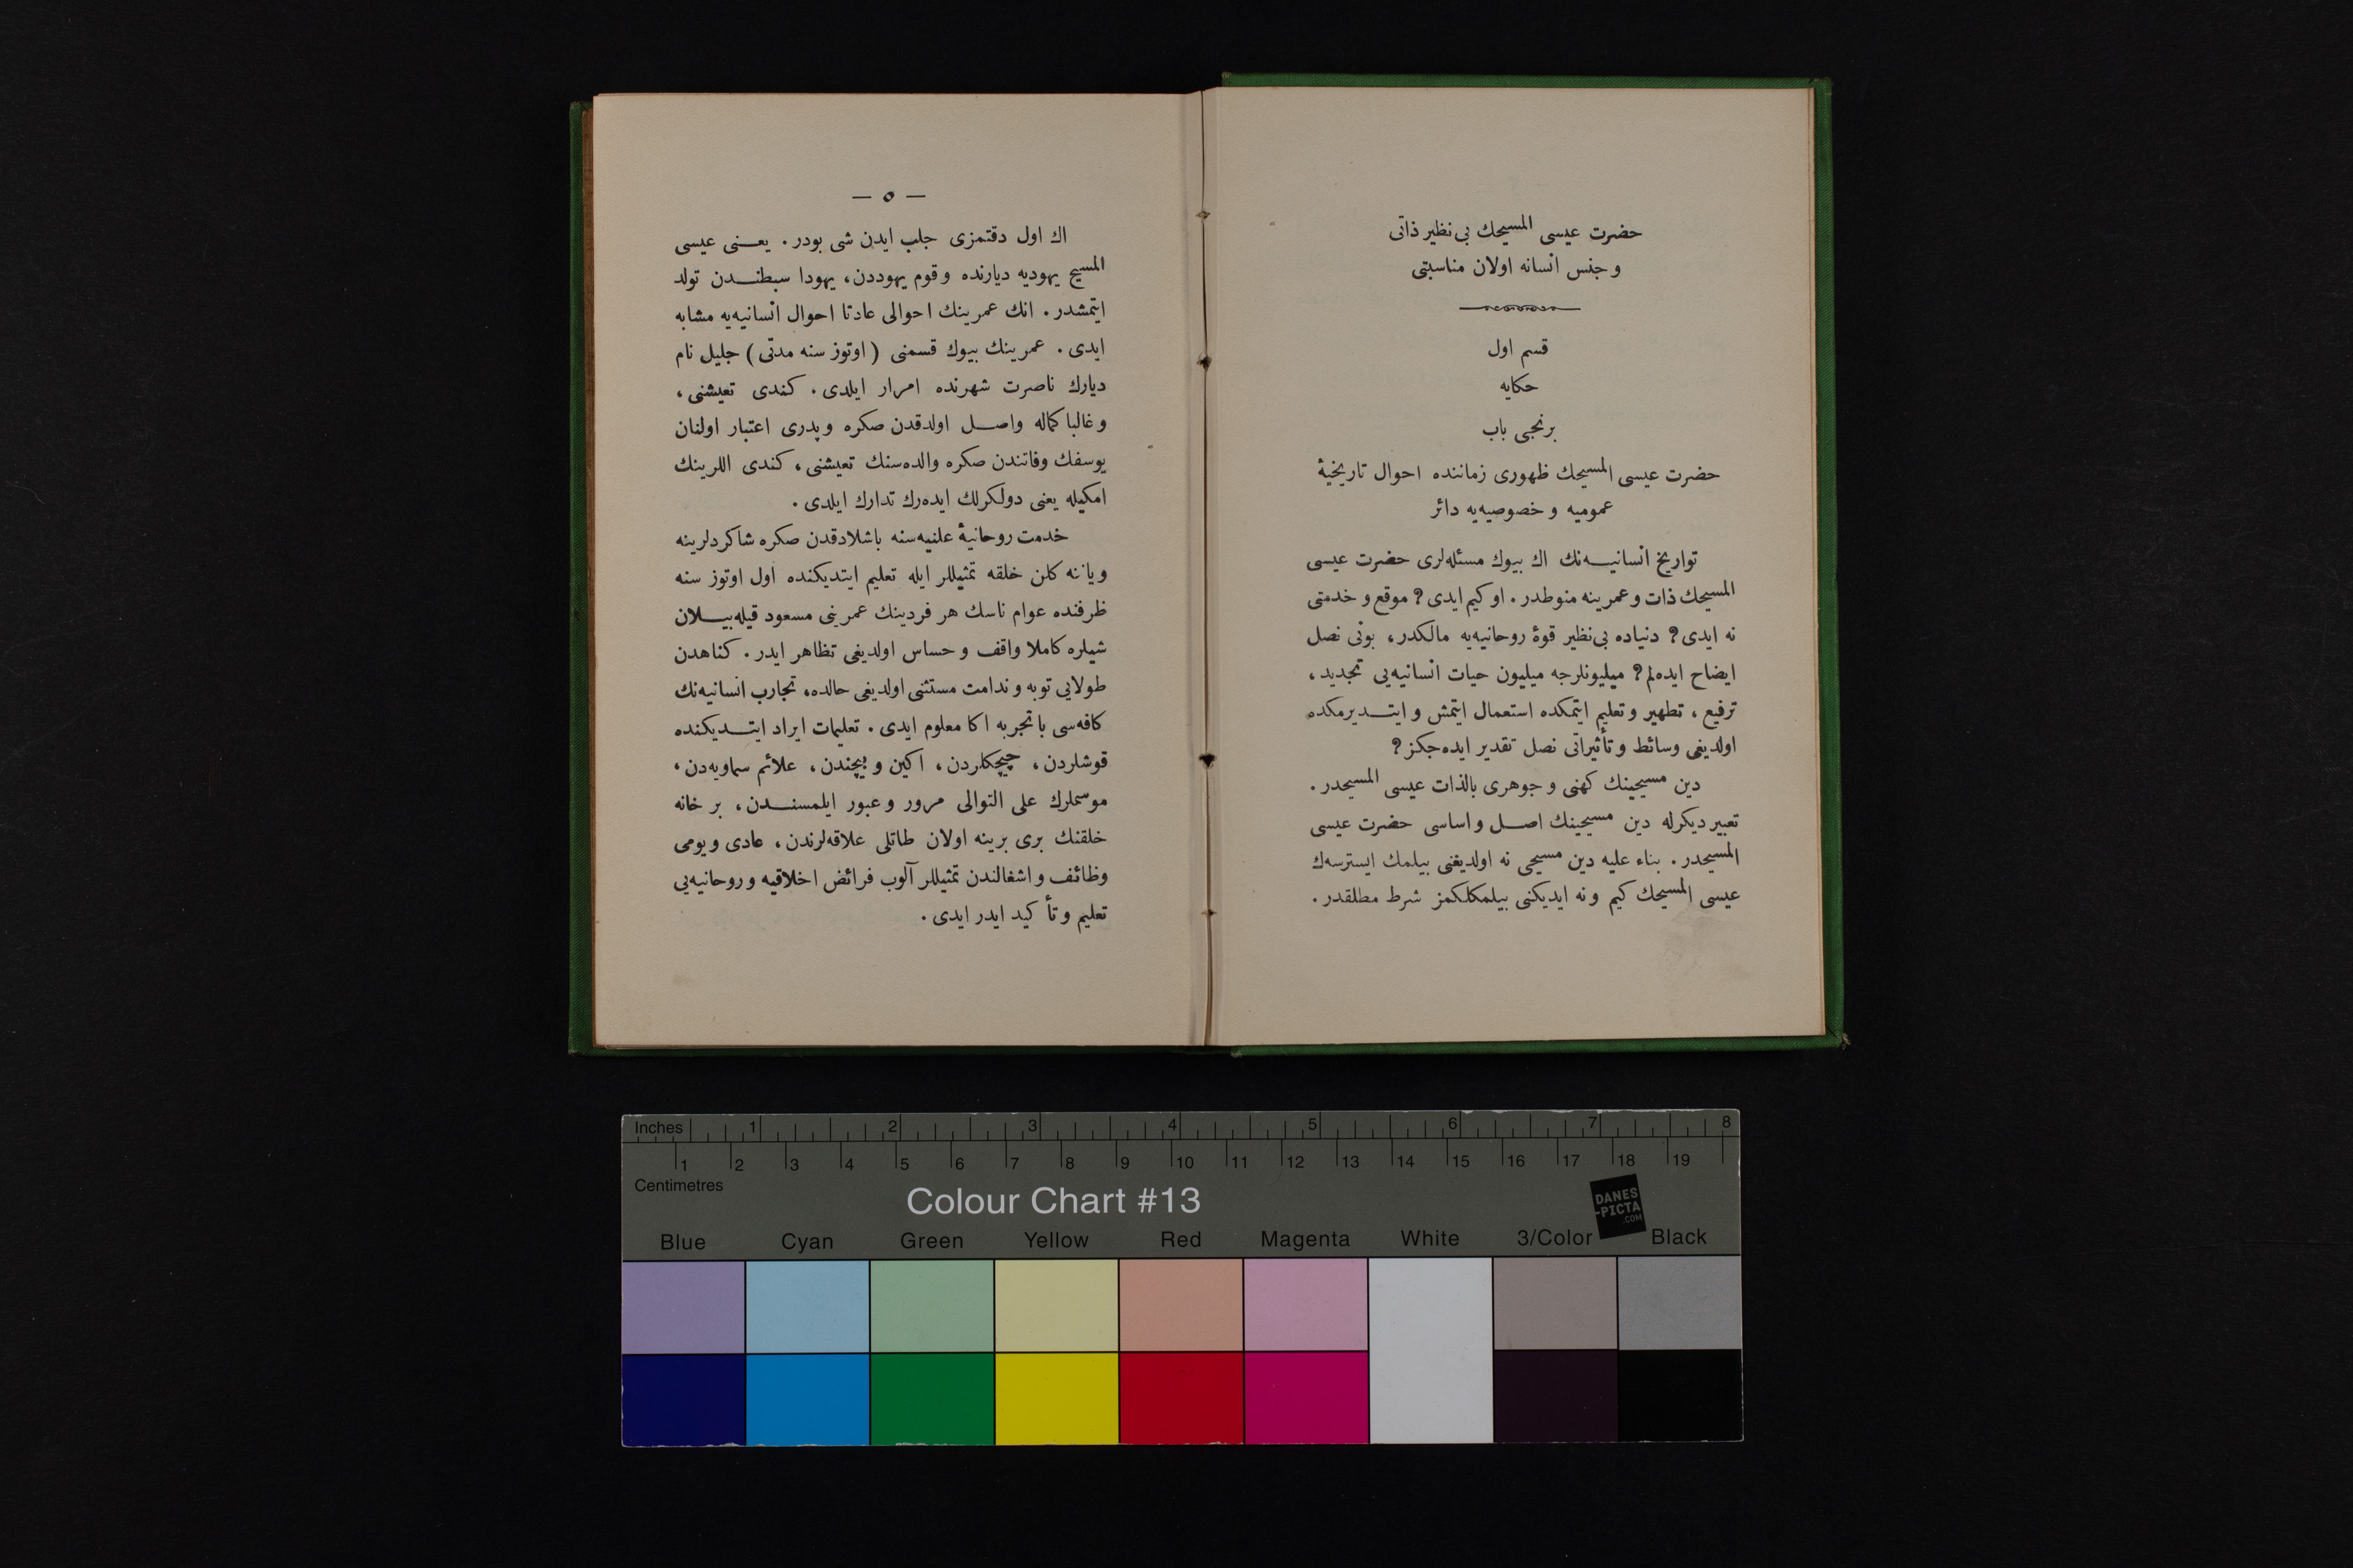 حضرت عيسى المسيحك بى‌نظير ذاتى
و جنس انسانه اولان مناسبتى
قسم اول
حكايه
برنجى باب
حضرت عيسى المسيحك ظهورى زماننده احوال تاريخيهٔ
عموميه و خصوصيه‌يه دائر
تواريخ انسانيــه‌نك اك بيوك مسئله‌لرى حضرت عيسى
المسيحك ذات و عمرينه منوطدر. او كيم ايدى؟ موقع و خدمتى
نه ايدى؟ دنياده بى‌نظير قوهٔ روحانيه‌يه مالكدر، بونى نصل
ايضاح ايده‌لم؟ ميليونلرجه ميليون حيات انسانيه‌يى تجديد،
ترفيع، تطهير و تعليم ايتمكده استعمال ايتمش و ايتــديرمكده
اولديغى وسائط و تأثيراتى نصل تقدير ايده‌جكز؟
دين مسيحينك كهنى و جوهرى بالذات عيسى المسيحدر.
تعبير ديكرله دين مسيحينك اصــل و اساسى حضرت عيسى
المسيحدر. بناء عليه دين مسيحى نه اولديغنى بيلمك ايسترسه‌ك
عيسى المسيحك كيم و نه ايديكنى بيلمكلكمز شرط مطلقدر.
— ٥ —
اك اول دقتمزى جلب ايدن شى بودر. يعــنى عيسى
المسيح يهوديه ديارنده و قوم يهوددن، يهودا سبطنــدن تولد
ايتمشدر. انك عمرينك احوالى عادتا احوال انسانيه‌يه مشابه
ايدى. عمرينك بيوك قسمنى (اوتوز سنه مدتى) جليل نام
ديارك ناصرت شهرنده امرار ايلدى. كندى تعيشنى،
و غالبا كماله واصــل اولدقدن صكره و پدرى اعتبار اولنان
يوسفك وفاتندن صكره والده‌سنك تعيشنى، كندى اللرينك
امكيله يعنى دولكرلك ايده‌رك تدارك ايلدى.
خدمت روحانيهٔ علنيه‌سنه باشلادقدن صكره شاكردلرينه
و يانه كلن خلقه تمثيللر ايله تعليم ايتديكنده اول اوتوز سنه
ظرفنده عوام ناسك هر فردينك عمرينى مسعود قيله‌بيــلان
شيلره كاملا واقف و حساس اولديغى تظاهر ايدر. كناهدن
طولايى توبه و ندامت مستثنى اولديغى حالده، تجارب انسانيه‌نك
كافه‌سى با تجربه اكا معلوم ايدى. تعليمات ايراد ايتــديكنده
قوشلردن، چيچكلردن، اكين و بيچندن، علائم سماويه‌دن،
موسملرك على التوالى مرور و عبور ايلمسنــدن، بر خانه
خلقنك برى برينه اولان طاتلى علاقه‌لرندن، عادى و يومى
وظائف و اشغالندن تمثيللر آلوب فرائض اخلاقيه و روحانيه‌يى
تعليم و تأكيد ايدر ايدى.
Inches 1 2 3 4 5 6 7 8
1 2 3 4 5 6 7 8 9 10 11 12 13 14 15 16 17 18 19
Centimetres
Colour Chart #13
DANES
-PICTA
.COM
Blue Cyan Green Yellow Red Magenta White 3/Color Black